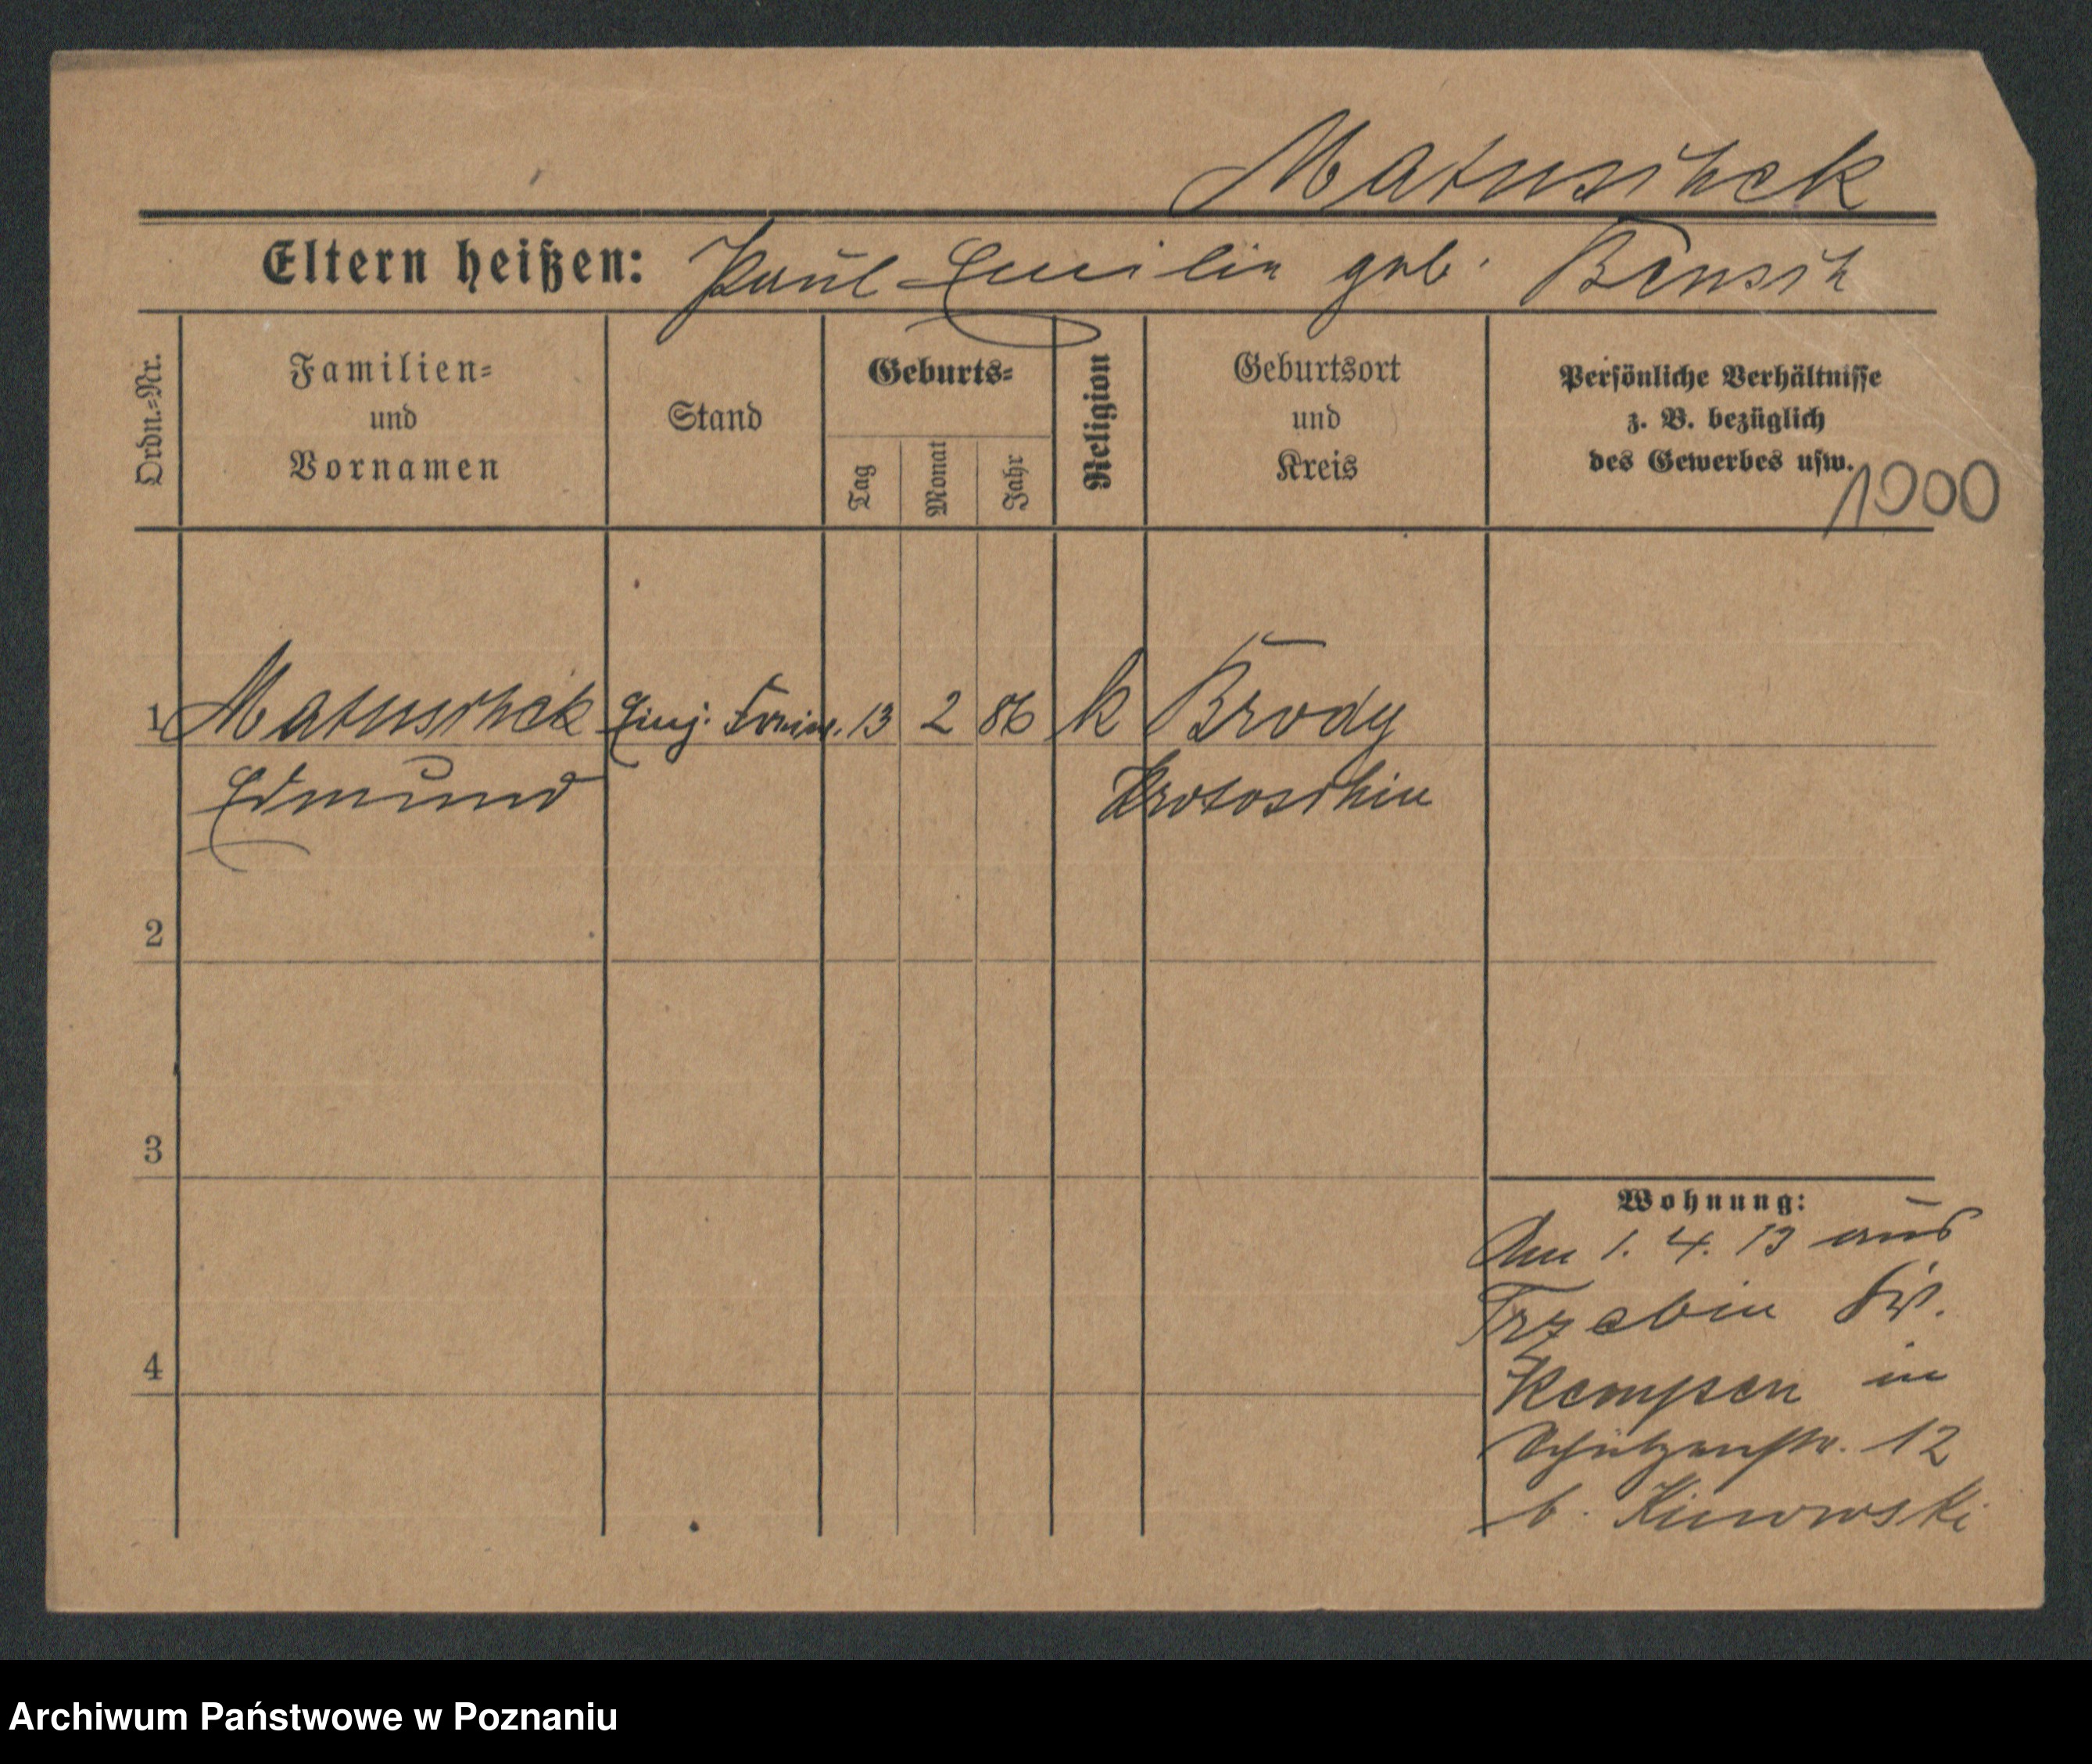 Matuschek
Eltern heißen: Paul – Emilie geb. Bensch
Ordn.=Nr.
Familien=
und
Vornamen
Stand
Geburts=
Tag
Monat
Jahr
Religion
Geburtsort
und
Kreis
Persönliche Verhältnisse
z. B. bezüglich
des Gewerbes usw.
1000
1 Matuschek Einj. Freiw. 13 2 86 k Brody
Edmund Krotoschin
2
3
4
Wohnung:
Am 1. 4. 13 aus
Trzebin Kr.
Kempen in
Schützenstr. 12
b.
Archiwum Państwowe w Poznaniu